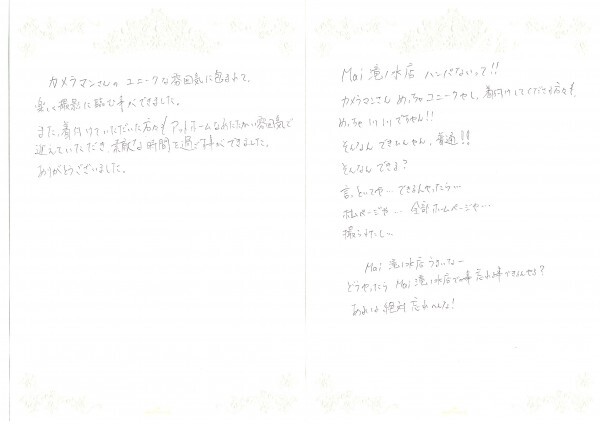 カメラマンさんの ユニークな雰囲気に包まれて、
楽しく撮影に臨む事ができました。
また、着付けしていただいた方々も アットホームなあたたかい雰囲気で
迎えていただき、素敵な時間を過ごす事ができました。
ありがとうございました。
Mai 滝ノ水店 ハンパないって!!
カメラマンさん めっちゃユニークやし、着付けしてくださる方々も
めっちゃ いい いい でちゃん!!
そんなん できひんやん、普通!!
そんなん できる?
言っといてや… できるんやったら…
ホームページや… 全部ホームページや…
撮られたし…
Mai 滝ノ水店 うまいなー
どうやったら Mai 滝ノ水店での事 忘れる事できるんやろ?
あれは 絶対 忘れへんな!